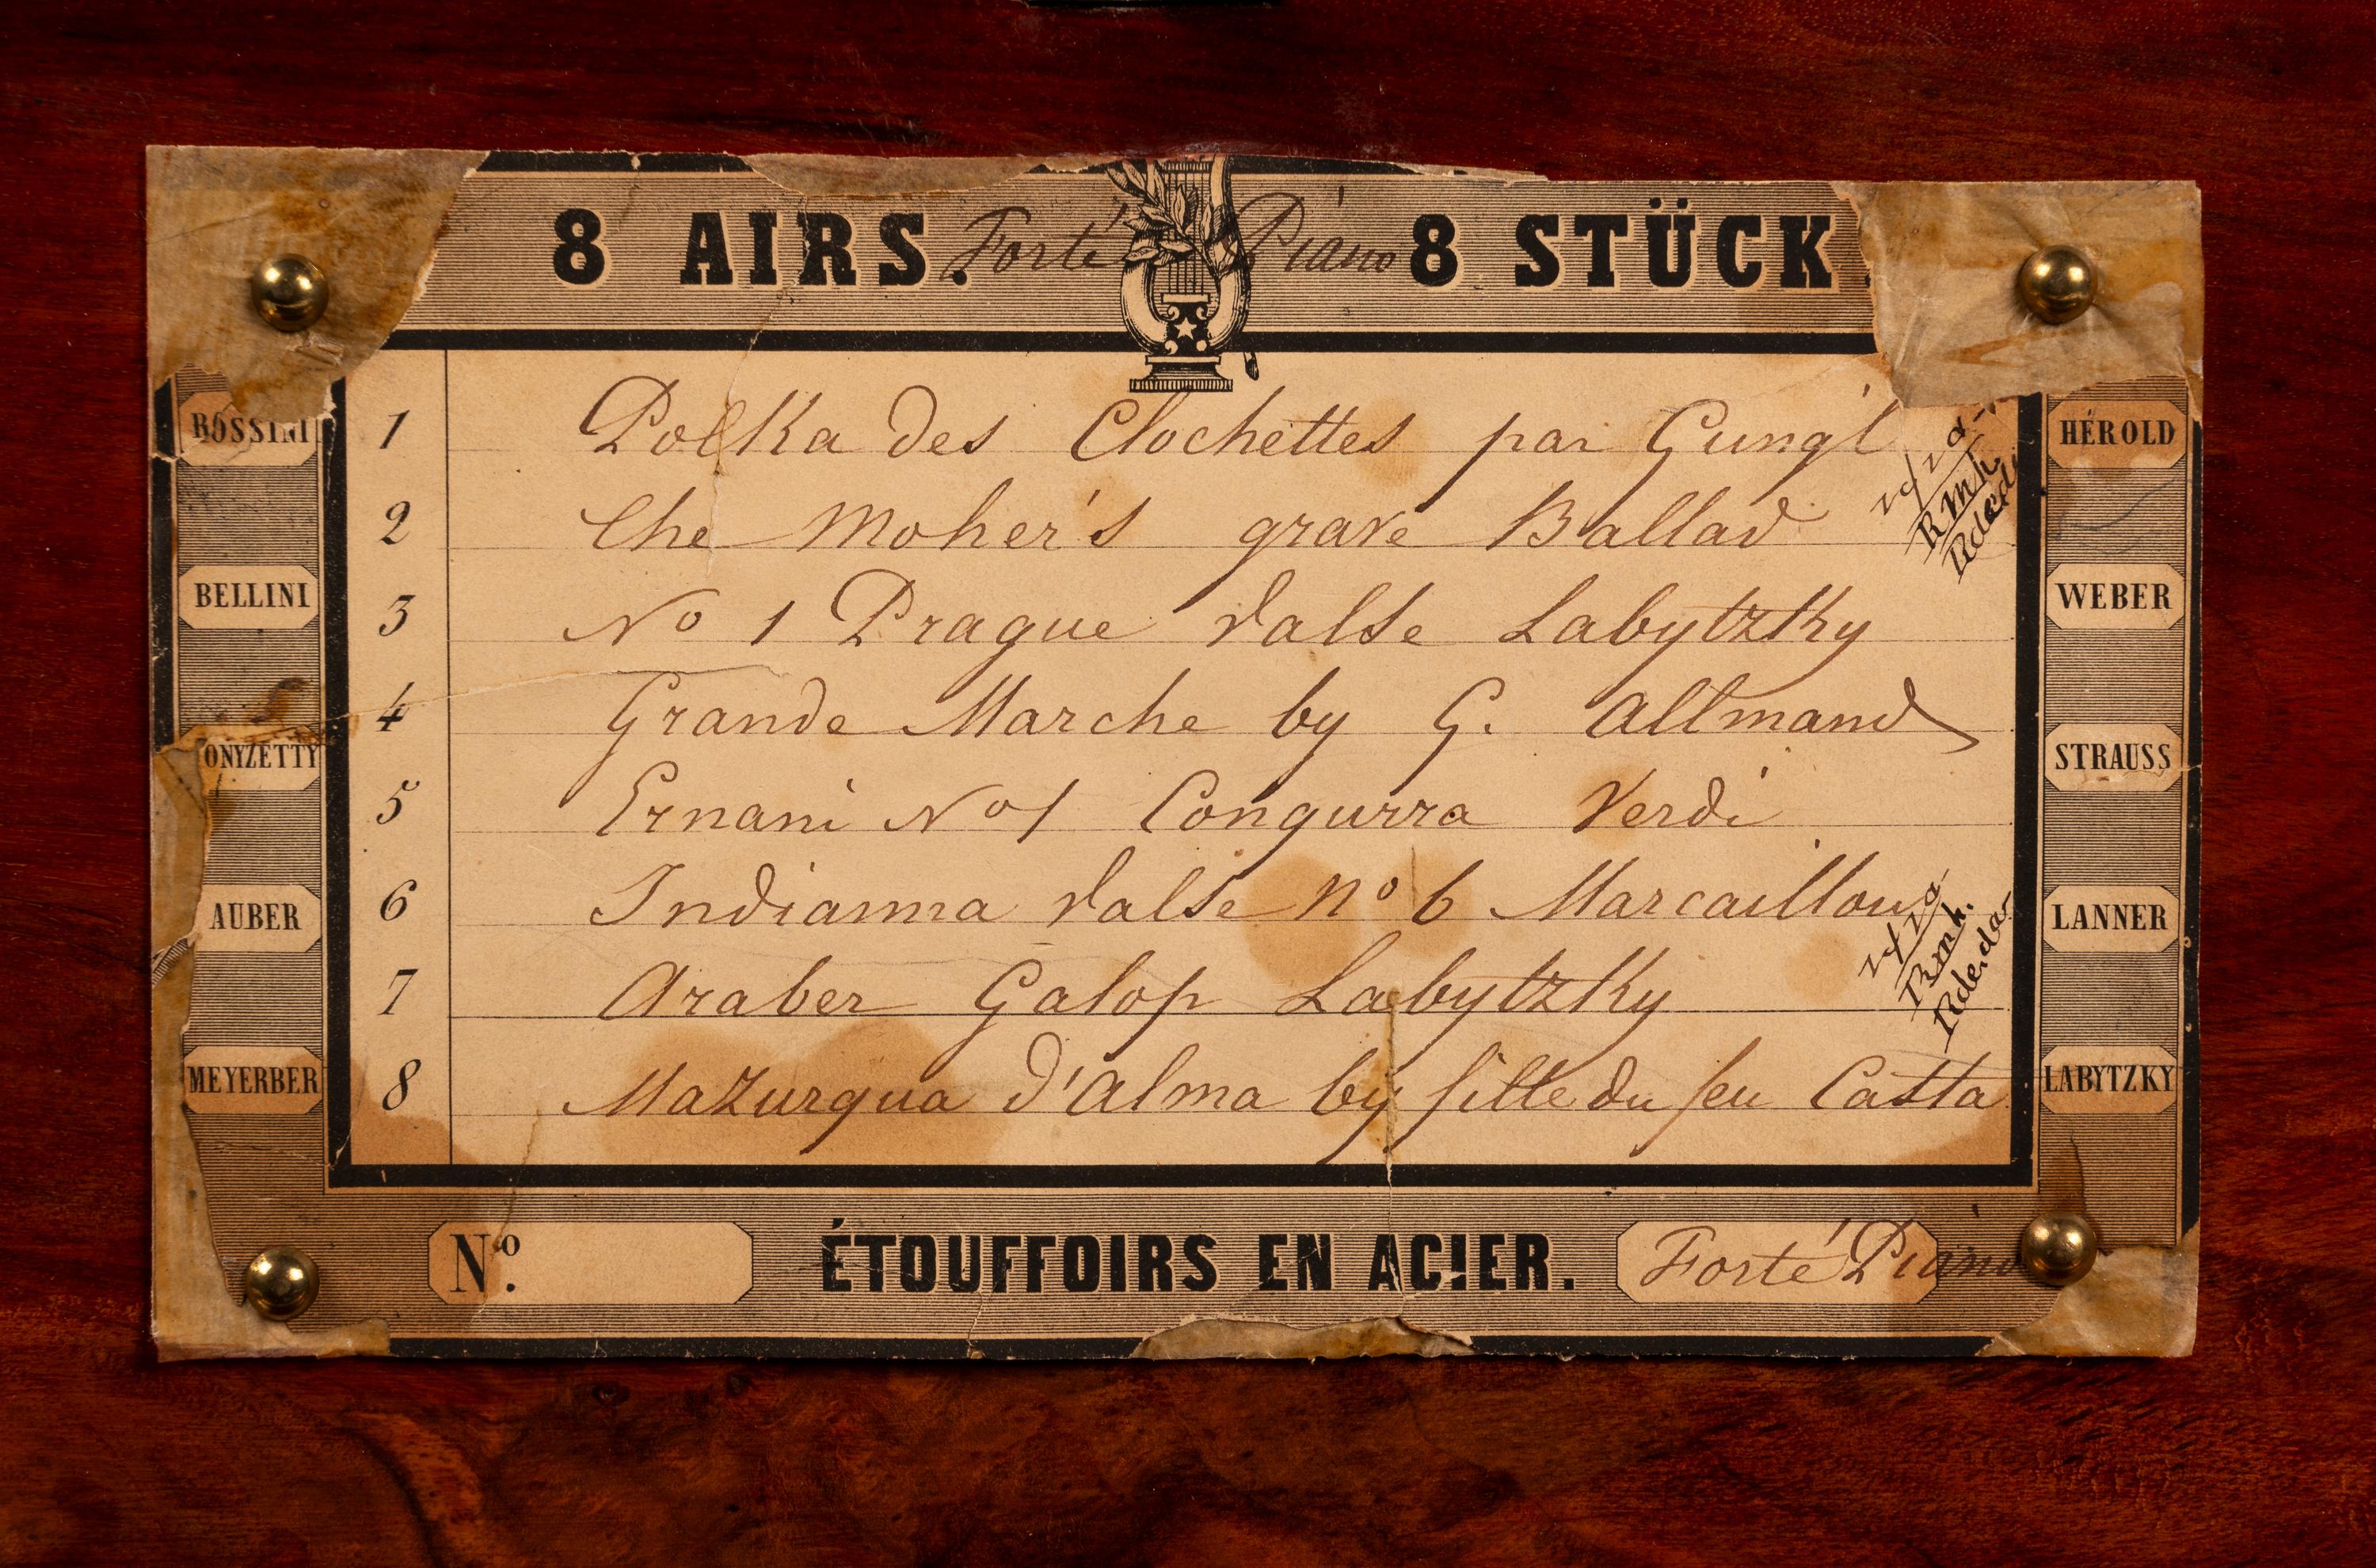 8 AIRS. Forté Piano 8 STÜCK.
ROSSINI
BELLINI
ONYZETTY
AUBER
MEYERBER
1 Polka des Clochettes par Gungl
2 The Moher's grave Ballad
3 No 1 Prague Valse Labytzky
4 Grande Marche by G. Altmand
5 Ernani No 1 Congurra Verdi
6 Indianna Valse No 6 Marcaillou
7 Araber Galop Labytzky
8 Mazurqua d'Alma by fille du feu Casta
HÉROLD
WEBER
STRAUSS
LANNER
LABYTZKY
No. ÉTOUFFOIRS EN ACIER. Forté Piano